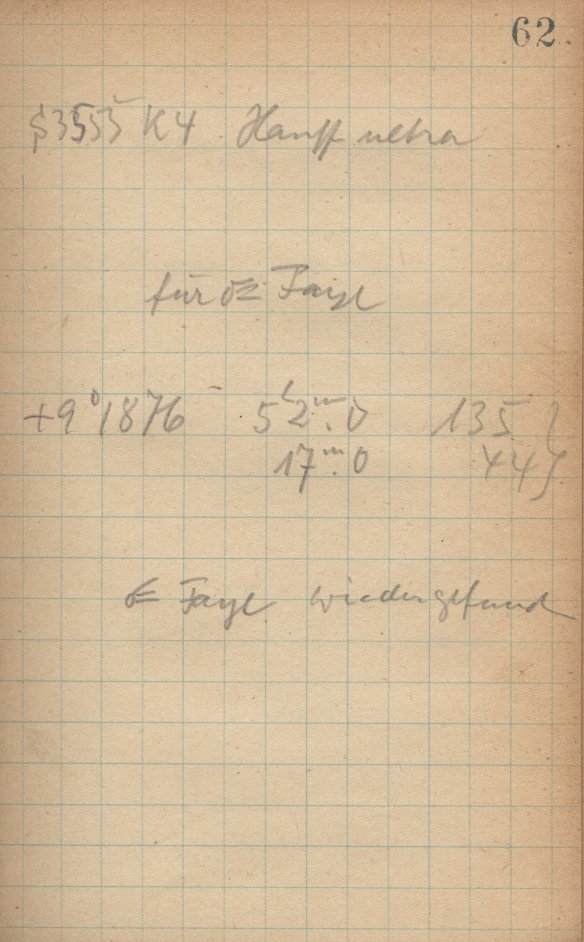 62
3553 K4 Hauff ultra
für ☄ Faye
+9°1876 52ᵐ.0 135
17ᵐ.0 44
☄ Faye wiedergefund